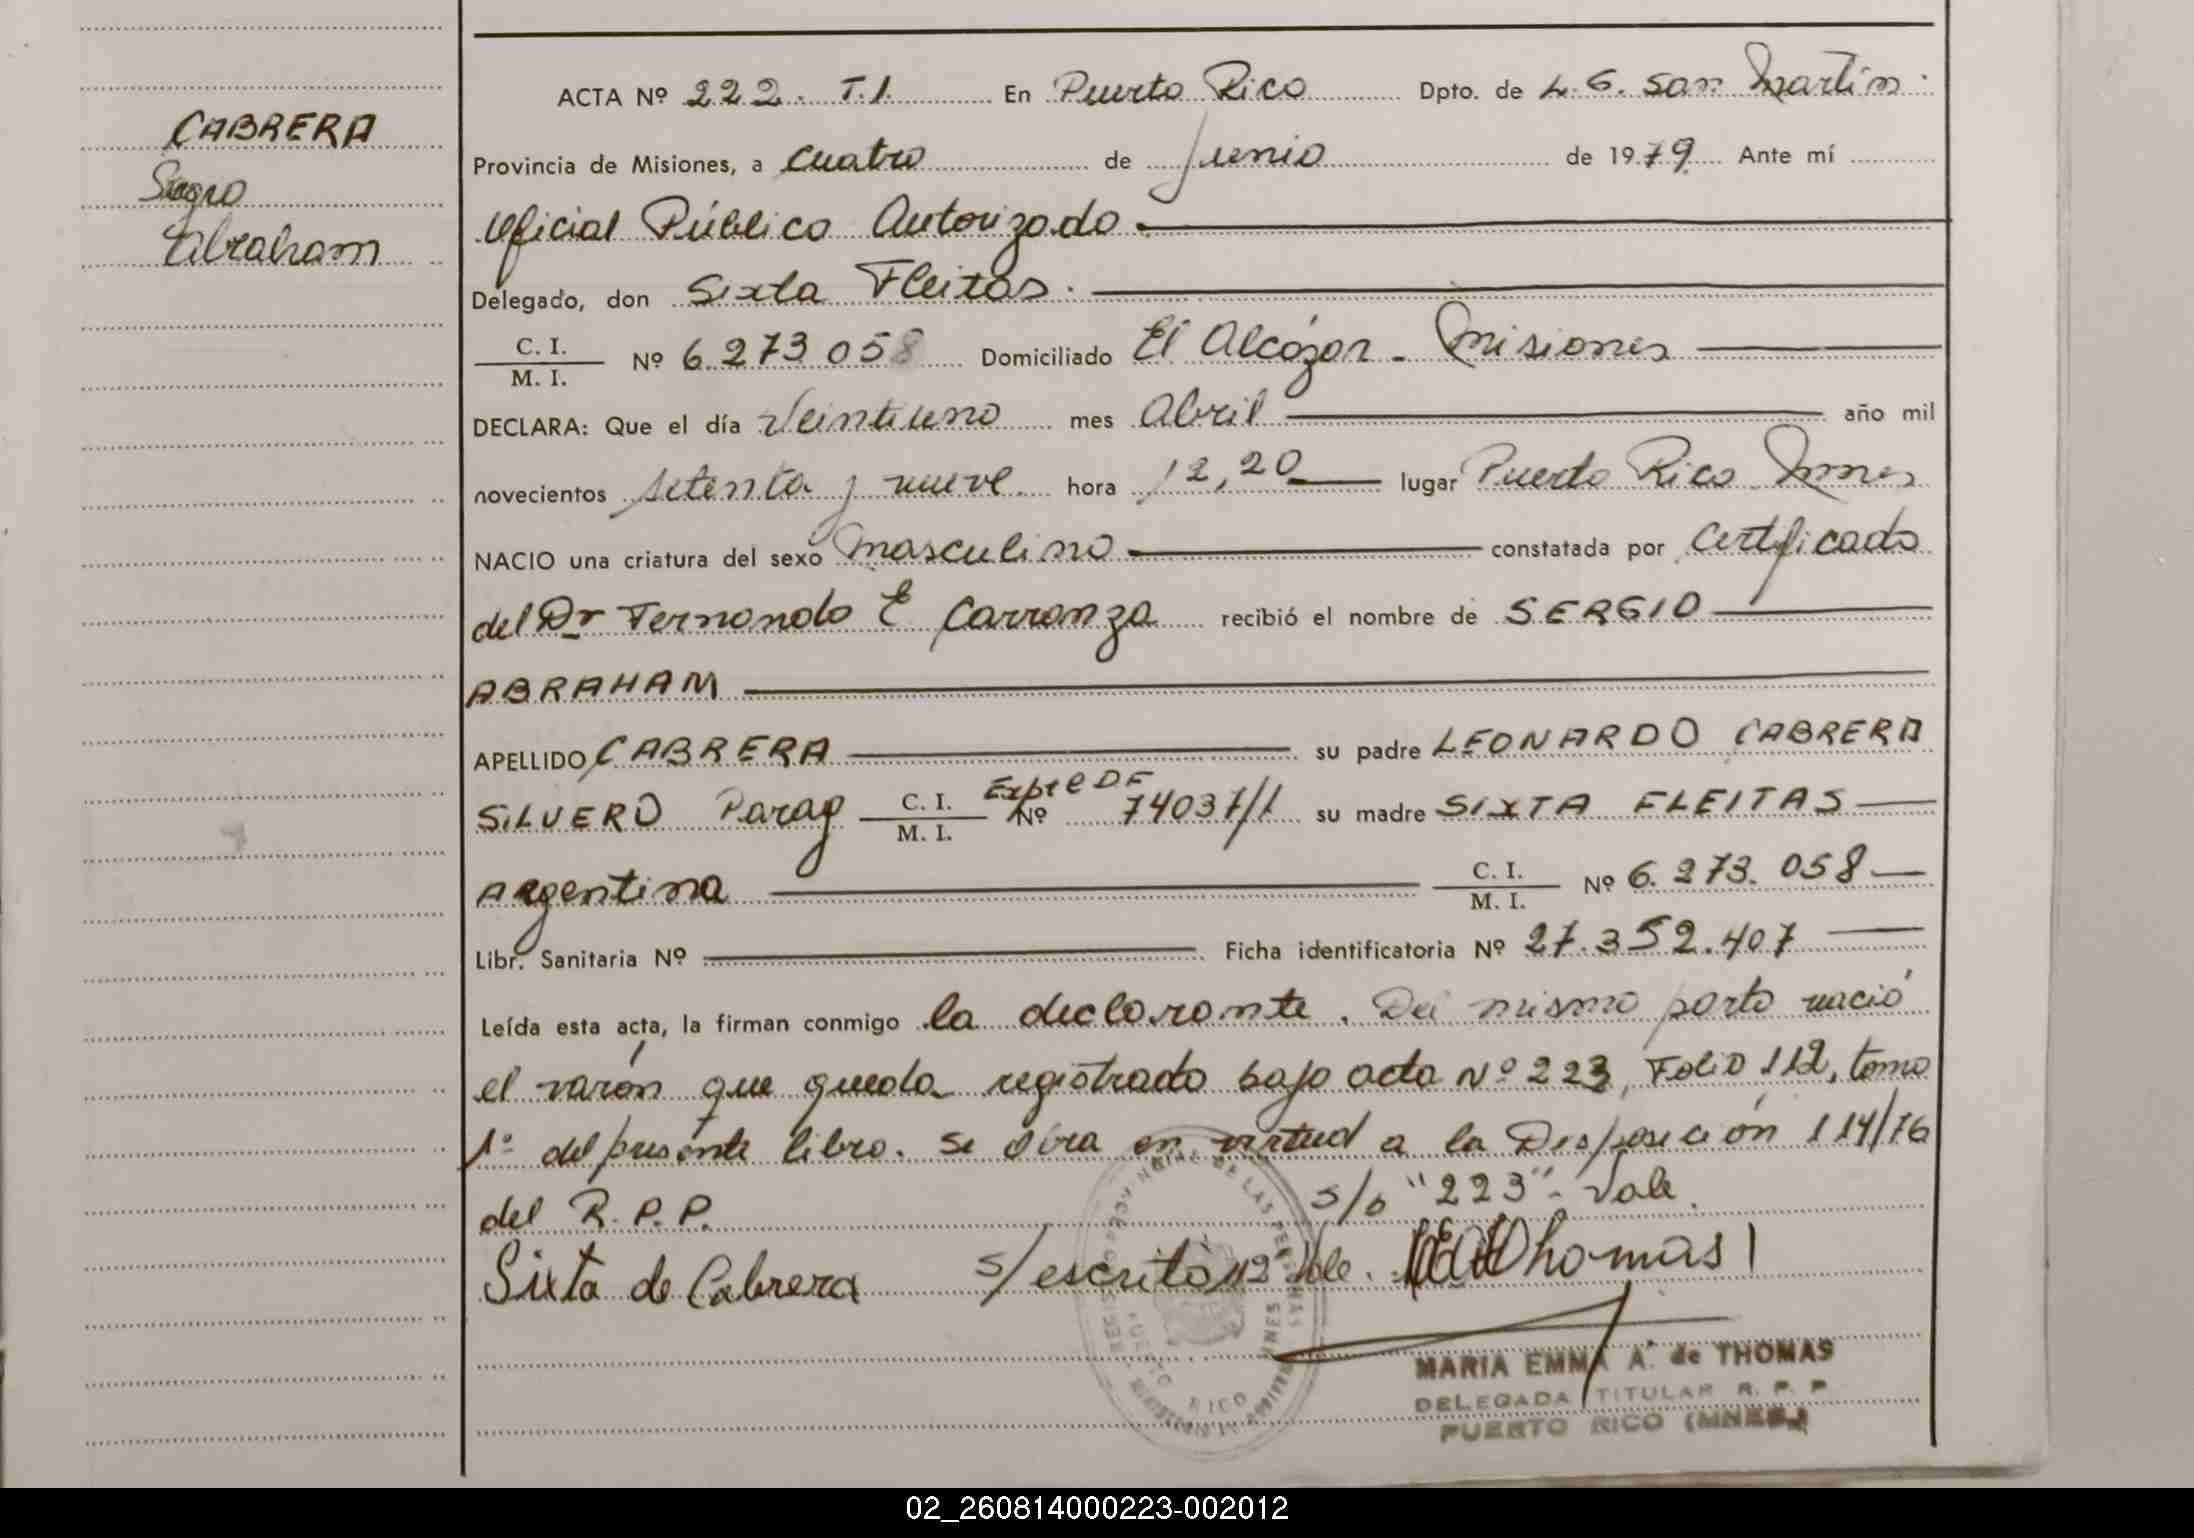 CABRERA
Sergio
Abraham
ACTA Nº 222. T.1. En Puerto Rico Dpto. de L. G. San Martín.
Provincia de Misiones, a cuatro de Junio de 1979. Ante mí
Oficial Público Autorizado.
Delegado, don Sixta Fleitas.
C. I. / M. I. Nº 6.273.058 Domiciliado El Alcázar - Misiones
DECLARA: Que el día Veintiuno mes Abril año mil
novecientos setenta y nueve hora 12,20 lugar Puerto Rico Mnes
NACIO una criatura del sexo masculino constatada por Certificado
del Dr Fernando E Carranza recibió el nombre de SERGIO
ABRAHAM
APELLIDO CABRERA su padre LEONARDO CABRERA
SILVERO Parag C. I. / M. I. Nº 74037/1 su madre SIXTA FLEITAS
Argentina C. I. / M. I. Nº 6.273.058
Libr. Sanitaria Nº Ficha identificatoria Nº 27.352.407
Leída esta acta, la firman conmigo la declarante. Del mismo parto nació
el varón que queda registrado bajo acta Nº 223, Folio 112, tomo
1º del presente libro. Se obra en virtud a la Disposición 114/76
del R. P. P. s/o "223" - Vale.
Sixta de Cabrera s/escrito 112 Vale. Thomas
MARIA EMMA A. de THOMAS
DELEGADA TITULAR R. P. P.
PUERTO RICO (MNES.)
02_260814000223-002012